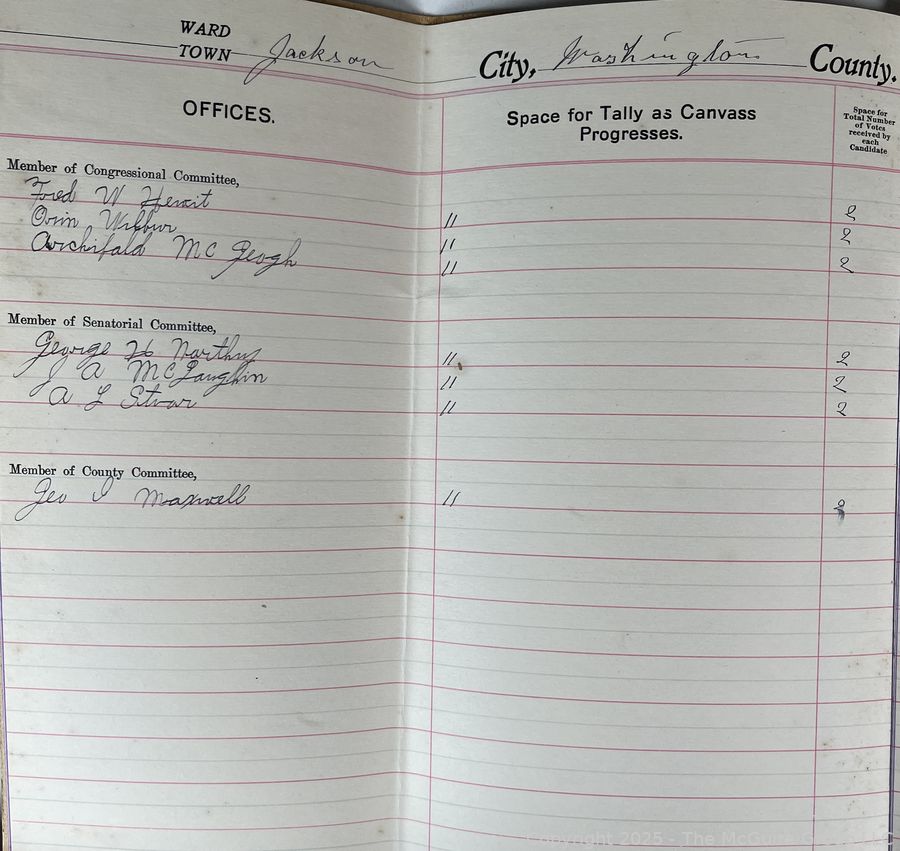 WARD
TOWN Jackson City, Washington County.
OFFICES. Space for Tally as Canvass Progresses. Space for Total Number of Votes received by each Candidate
Member of Congressional Committee,
Fred W Hewit " 2
Orin Wilbur " 2
Archifald Mc Geogh " 2
Member of Senatorial Committee,
George H Northup " 2
J A McLaughlin " 2
A L Stover " 2
Member of County Committee,
Geo I Maxwell " 2
Copyright 2025 - The McGuire LLC